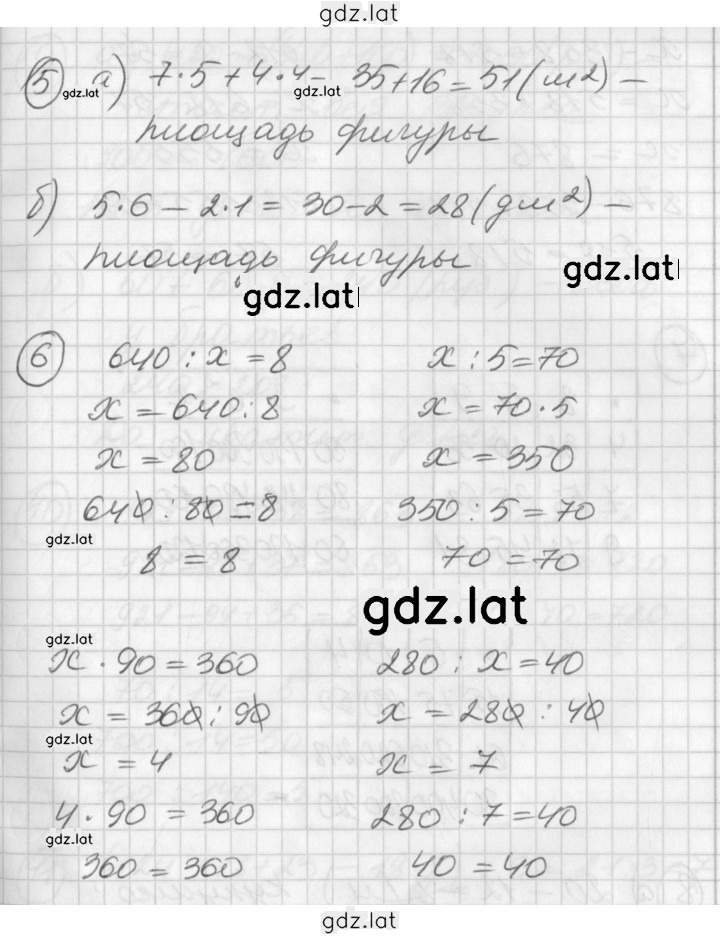 gdz.lat
5 а) 7·5+4·4= 35+16=51(м²) –
gdz.lat gdz.lat
площадь фигуры
б) 5·6 – 2·1 = 30-2=28(дм²) –
площадь фигуры
gdz.lat
gdz.lat
6 640 : x = 8 x : 5 = 70
x = 640:8 x = 70·5
x = 80 x = 350
640 : 80 = 8 350 : 5 = 70
gdz.lat
8 = 8 70 = 70
gdz.lat
gdz.lat
x · 90 = 360 280 : x = 40
x = 360 : 90 x = 280 : 40
gdz.lat
x = 4 x = 7
4 · 90 = 360 280 : 7 = 40
gdz.lat
360 = 360 40 = 40
gdz.lat